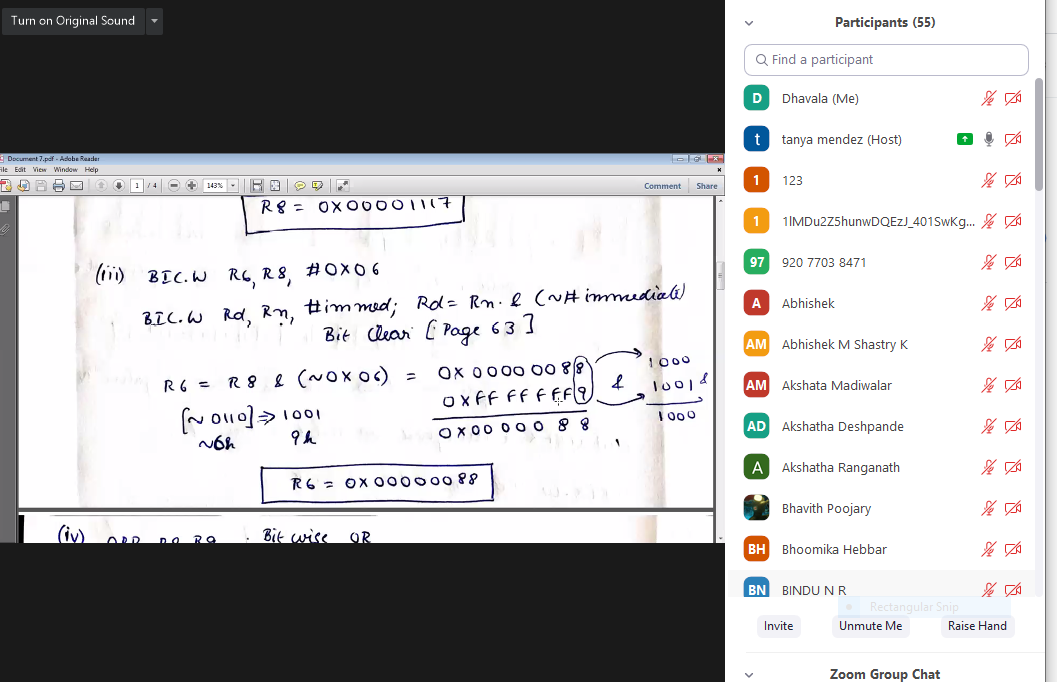 Turn on Original Sound
Document 7.pdf - Adobe Reader
File Edit View Window Help
1 / 4 143% Comment Share
R8 = 0X00001117
(iii) BIC.W R6, R8, #0X06
BIC.W Rd, Rn, #immed; Rd = Rn. & (~# immediate)
Bit Clear [Page 63]
R6 = R8 & (~0X06) = 0X 000000 88
0XFF FFFFF9
0X00 000 88
[~0110] => 1001
~6h 9h
& 1000
1001 &
1000
R6 = 0X00000088
(iv) Bit wise OR
Participants (55)
Find a participant
D Dhavala (Me)
t tanya mendez (Host)
1 123
1 1lMDu2Z5hunwDQEzJ_401SwKg...
97 920 7703 8471
A Abhishek
AM Abhishek M Shastry K
AM Akshata Madiwalar
AD Akshatha Deshpande
A Akshatha Ranganath
Bhavith Poojary
BH Bhoomika Hebbar
BN BINDU N R
Rectangular Snip
Invite Unmute Me Raise Hand
Zoom Group Chat